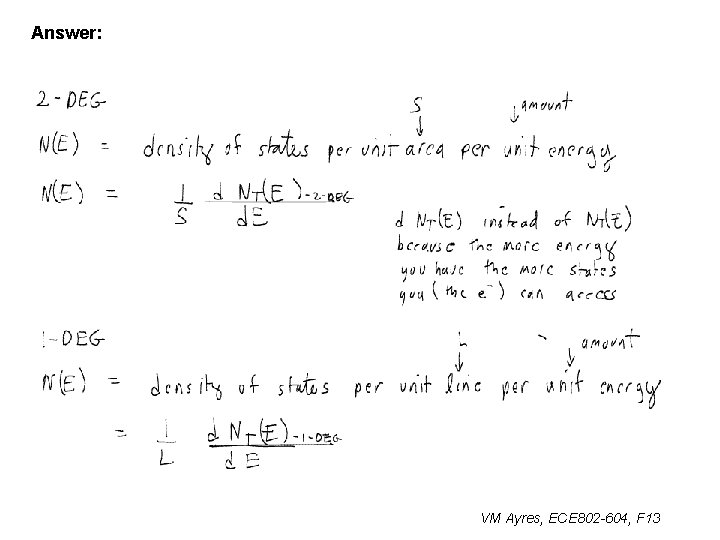 Answer:
2-DEG
S ↓ ↓ amount
N(E) = density of states per unit area per unit energy
N(E) = 1/S d N_T(E)-2-DEG / dE
d N_T(E) instead of N_T(E)
because the more energy
you have the more states
you (the e⁻) can access
1-DEG
L ↓ ↓ amount
N(E) = density of states per unit line per unit energy
= 1/L d N_T(E)-1-DEG / dE
VM Ayres, ECE802-604, F13